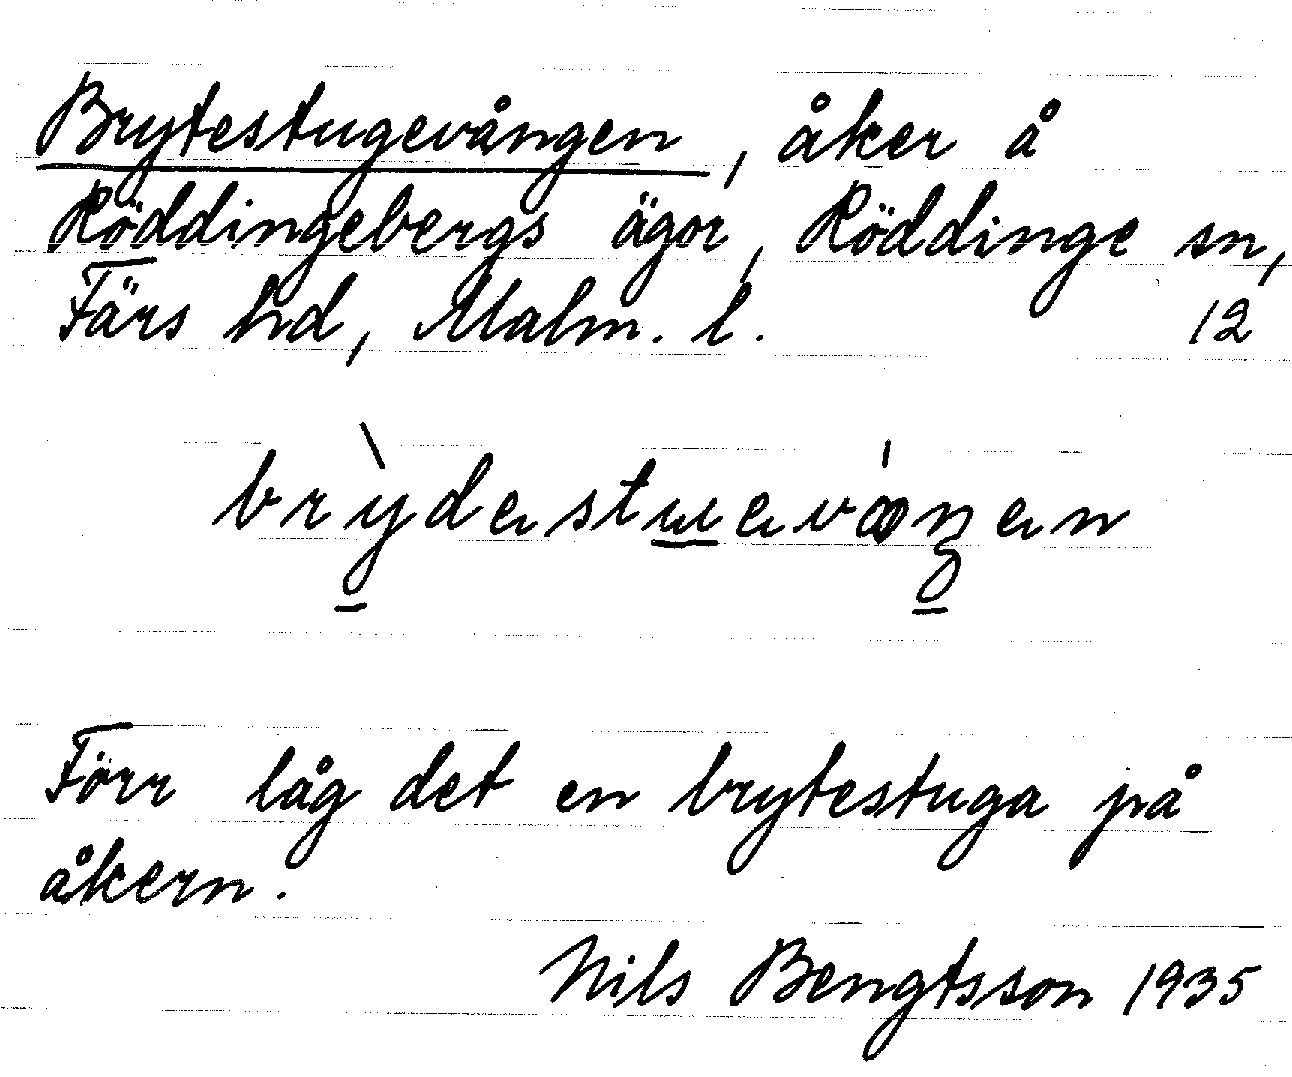 Brytestugevången, åker å
Röddingebergs ägor, Röddinge sn,
Färs hd, Malm. l. 12
Förr låg det en brytestuga på
åkern.
Nils Bengtsson 1935